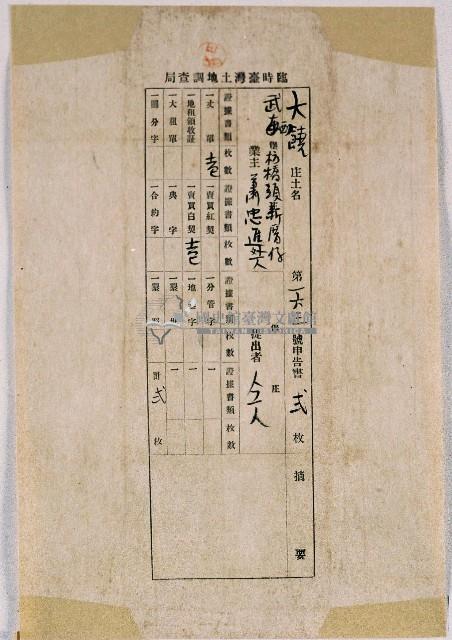 臨時臺灣土地調查局
大饒 庄土名 第一六 號申告書 弍 枚 摘 要
武西 堡 枋橋頭新厝仔 堡 庄
業主 蕭忠進 外 提出者 仝人
證據書類 枚數 證據書類 枚數 證據書類 枚數 證據書類 枚數
一丈單 壱 一賣買紅契 一分管字 一
一地租領收証 一賣買白契 壱 一地 字 一
一大租單 一典字 一 一
一鬮分字 一合約字 一 計 弍 枚
國史館臺灣文獻館
TAIWAN HISTORICA